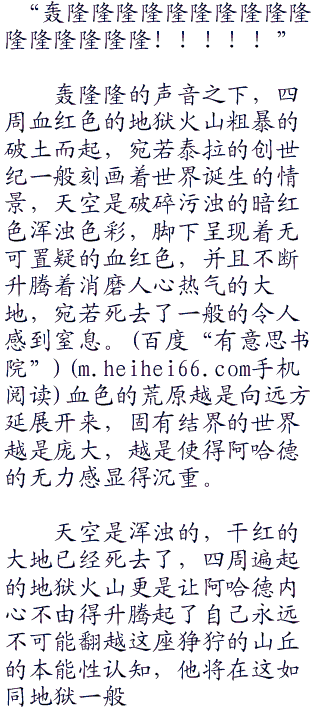 “轰隆隆隆隆隆隆隆隆隆隆
隆隆隆隆隆隆！！！！！”
轰隆隆的声音之下，四
周血红色的地狱火山粗暴的
破土而起，宛若泰拉的创世
纪一般刻画着世界诞生的情
景，天空是破碎污浊的暗红
色浑浊色彩，脚下呈现着无
可置疑的血红色，并且不断
升腾着消磨人心热气的大
地，宛若死去了一般的令人
感到窒息。(百度“有意思书
院”)(m.heihei66.com手机
阅读)血色的荒原越是向远方
延展开来，固有结界的世界
越是庞大，越是使得阿哈德
的无力感显得沉重。
天空是浑浊的，干红的
大地已经死去了，四周遍起
的地狱火山更是让阿哈德内
心不由得升腾起了自己永远
不可能翻越这座狰狞的山丘
的本能性认知，他将在这如
同地狱一般